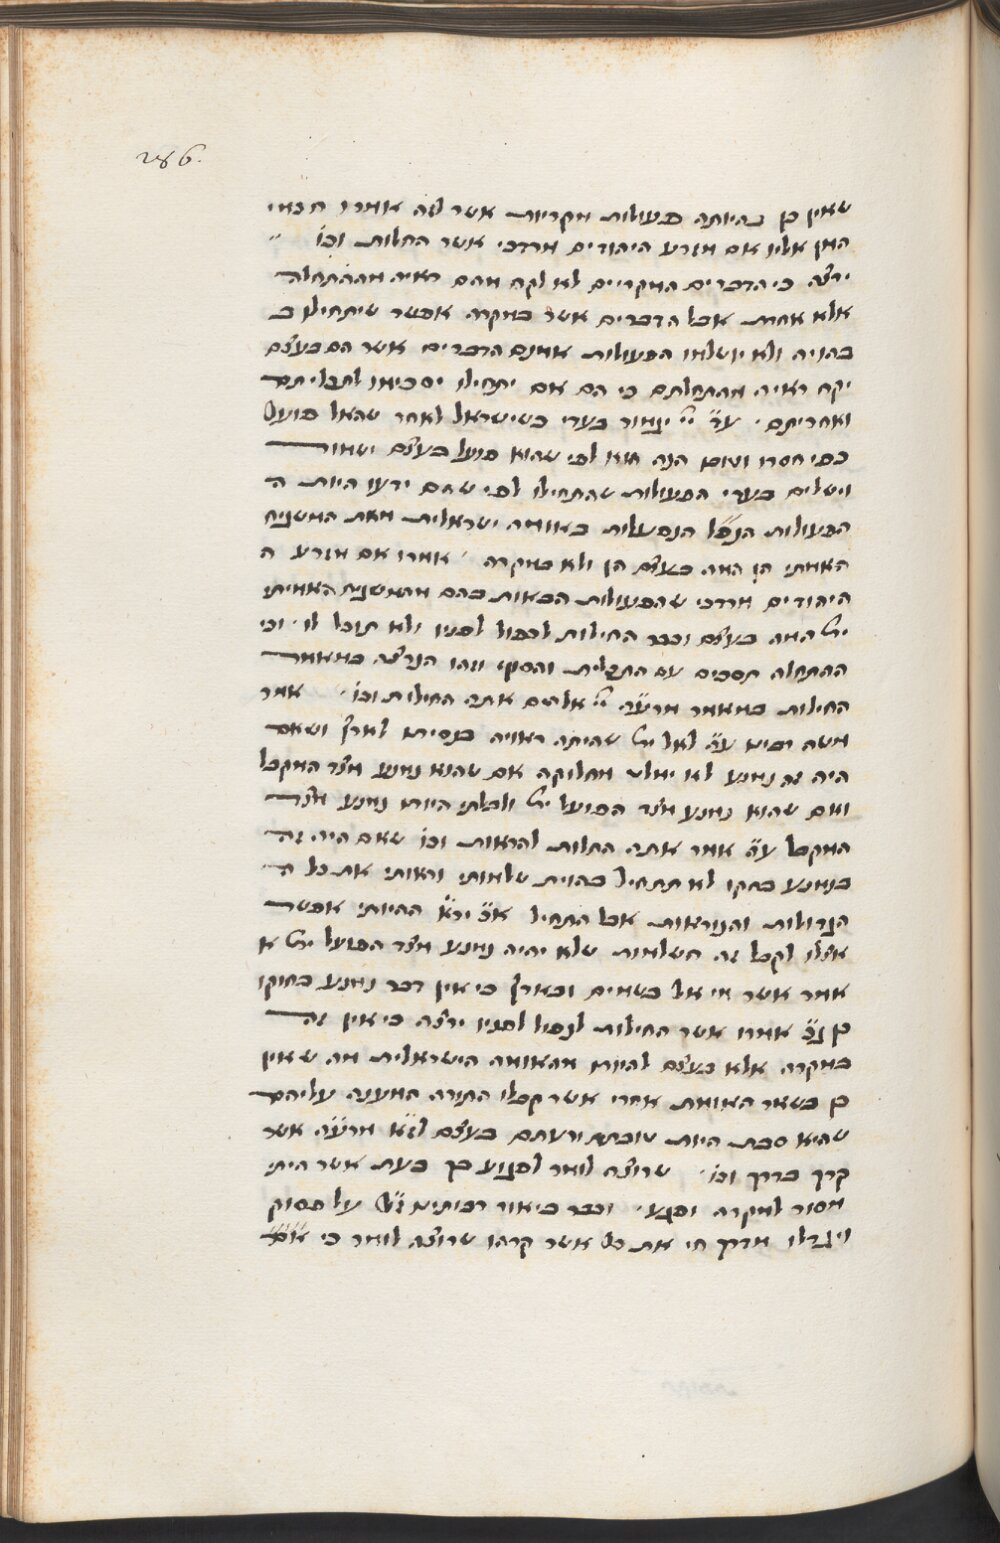 286.
שאין כן בהיותה פעולות מקריות אשר לזה אמרו חכמי
המן אליו אם מזרע היהודים מרדכי אשר החלות וכו'
ירצה כי הדברים המקריים לא לקח מהם ראיה מההתחלה
אלא אחת אבל הדברים אשר במקרה אפשר שיתחילו ב
בהויה ולא יושלמו הפעולות אמנם הדברים אשר הם בעצם
יקח ראיה מהתחלתם כי הם אם יתחילו יסכימו לתכליתם
ואחריתם · ע"ד יי' יגמור בעדי כשישראל לאחר שהאל פועל
כפי חסדו הנה הוא לפי שהוא פועל בעצם ישמור
וישלים בעדי הפעולות שהתחילו לפי שהם ידעו היות ה
הפעולות הנ"ל הנפעלות באומה ישראלית מאת המשגיח
האמתי הן המה בעצם הן ולא במקרה · אמרו אם מזרע ה
היהודים מרדכי שהפעולות הבאות בהם מהמשגיח האמיתי
ית' המה בעצם וכבר החילות לנפול לפניו ולא תוכל לו · וכי
ההתחלה תסכים עם התכלית והסוף וזהו הנרצה במאמר
החילות במאמר מרע"ה יי' אלהים אתה החילות וכו' · אמר
משה רבינו ע"ה לאל ית' שהיתה ראויה כניסתו לארץ ושאם
היה זה נמנע לא ימלט מחלוקה אם שהוא נמנע מצד המקבל
ואם שהוא נמנע מצד הפועל ית' ולבלתי היותו נמנע מצד
המקבל ע"ה אמר אתה החלות להראות וכו' שאם היה זה
בנמנע בחקו לא תתחיל בהוית שלמותי וראותי את כל ה
הגדולות והנוראות אבל התחיל א"כ יר"א ההיותי אפשר
אצלו לקבל זה השלמות שלא יהיה נמנע מצד הפועל ית' א
אמר אשר מי אל בשמים ובארץ כי אין דבר נמנע בחוקו
כן ג"כ אמרו אשר החילות לנפול לפניו ירצה כי אין זה
במקרה אלא בעצם להיותו מהאומה הישראלית מה שאין
כן בשאר האומות אחרי אשר קבלו התורה המעונה עליהם
שהיא סבת היות טובתם ורעתם בעצם לז"א מרע"ה אשר
קרך בדרך וכו' · שרוצה לומר לפגוע בך בעת אשר היתי
מסור למקרה ופגע · וכבר ביאור רבותינו ז"ל על פסוק
ויגדלו מרדכי את כל אשר קרהו שרוצה לומר כי אם